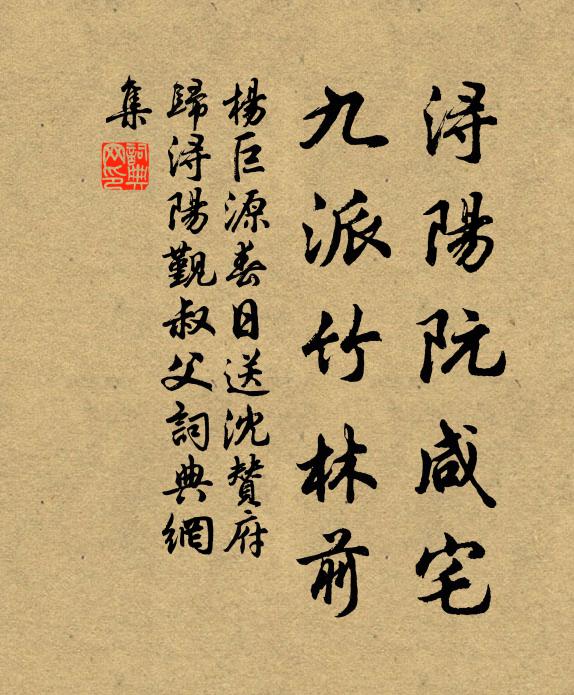 潯陽阮咸宅
九派竹林前
楊巨源春日送沈贊府
歸潯陽覲叔父詞典網
集
詞典網印